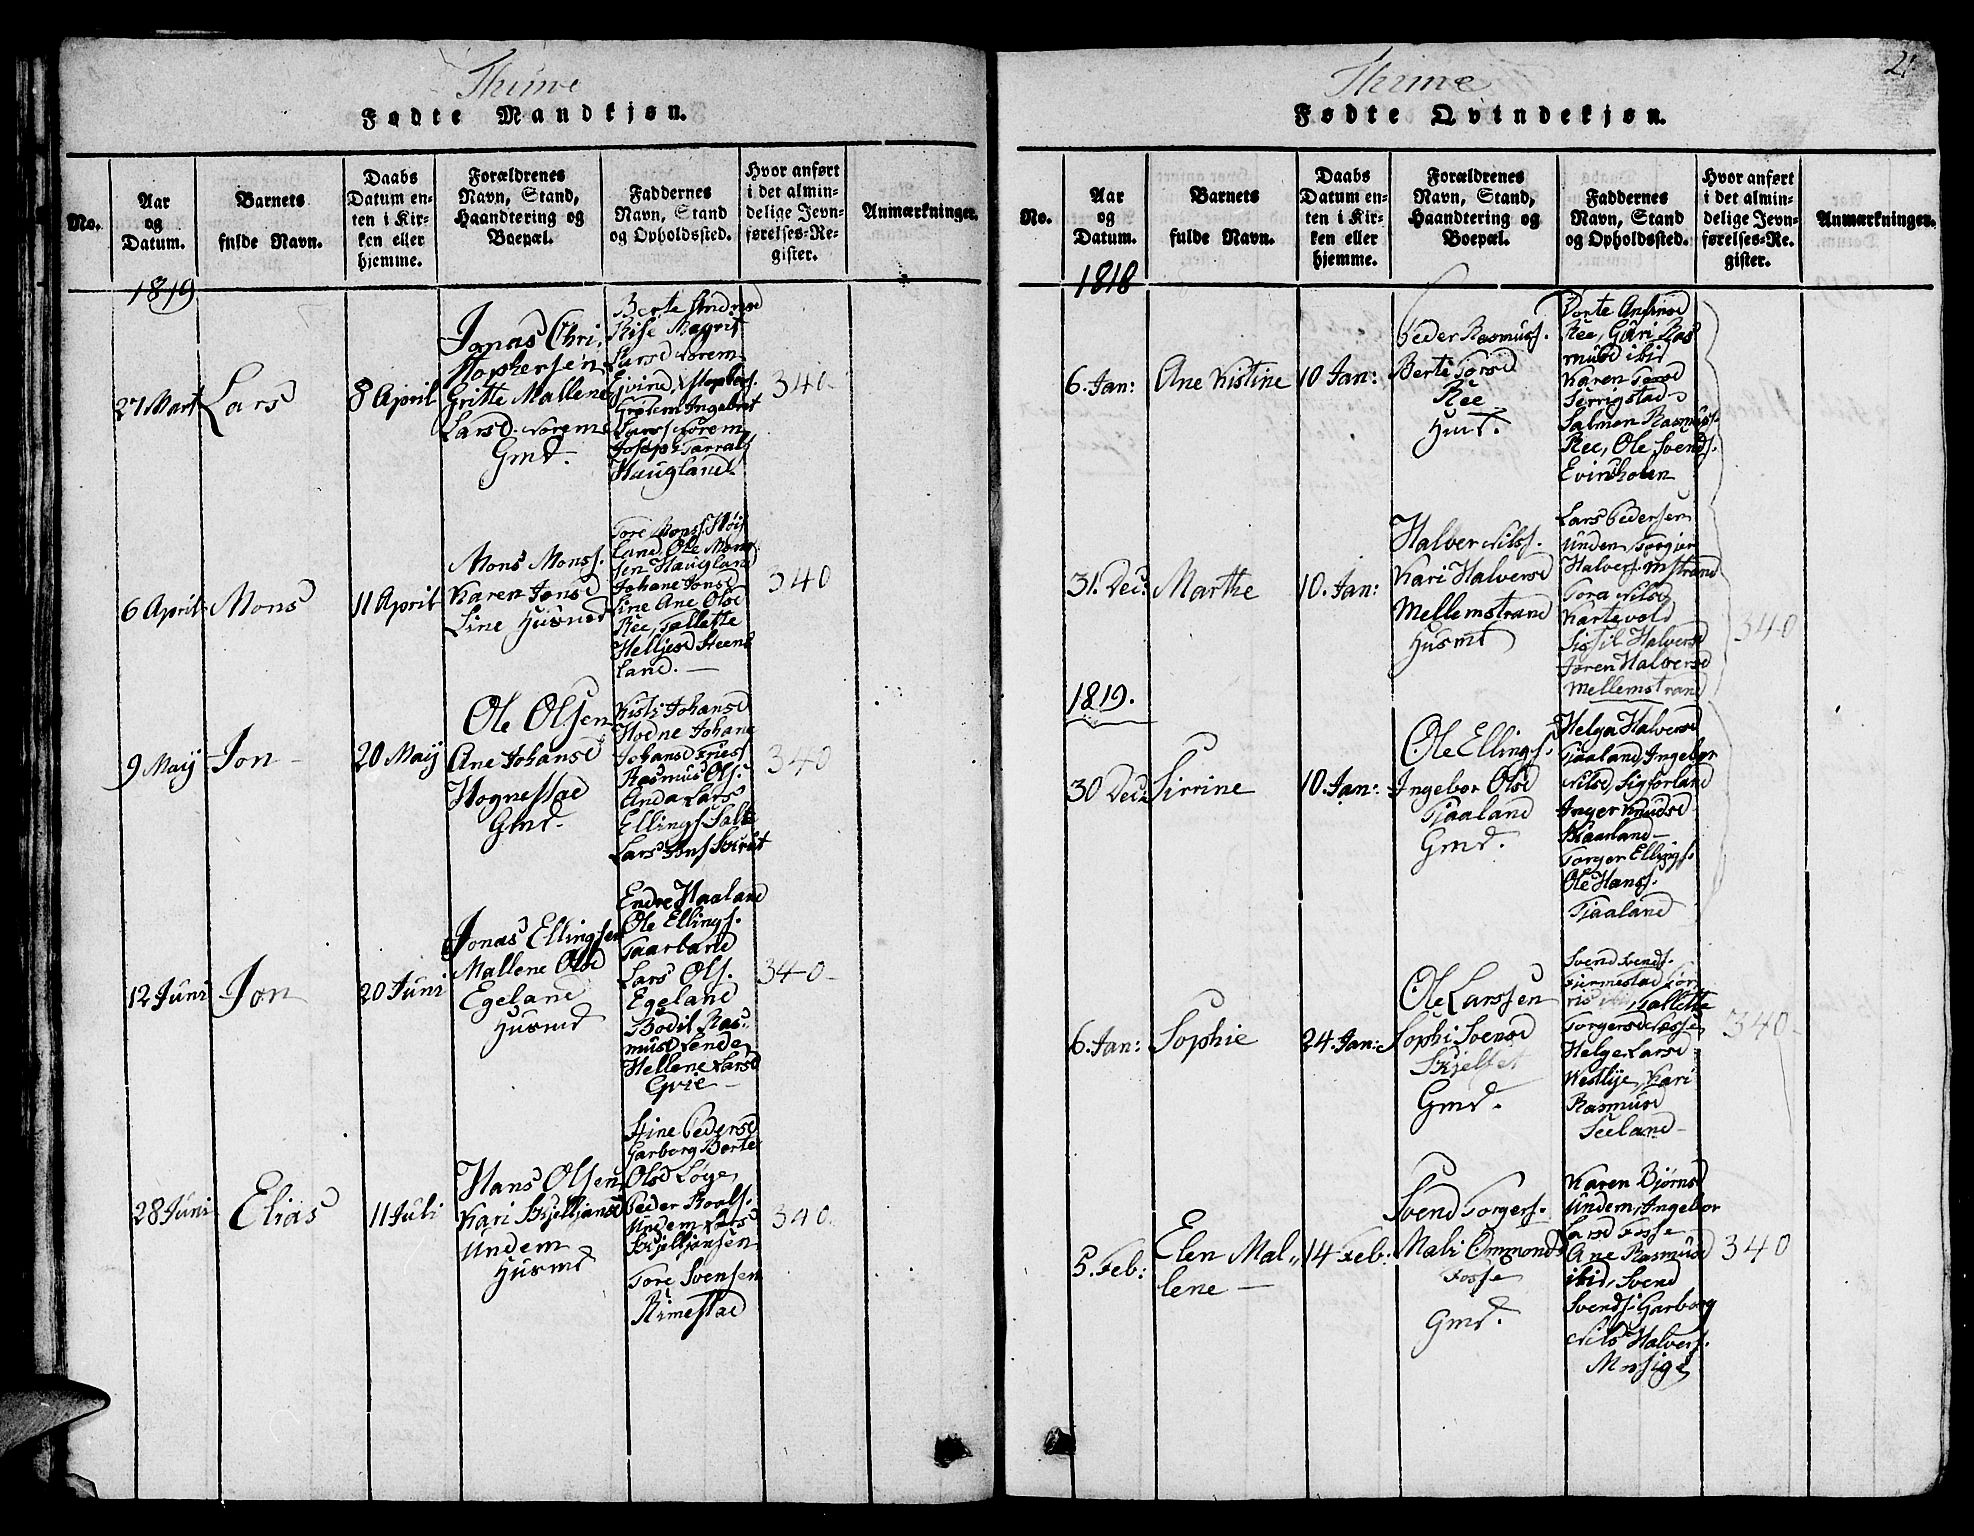 Thime
Fødte Mandkjøn.
No.
Aar
og
Datum.
Barnets
fulde Navn.
Daabs
Datum en-
ten i Kir-
ken eller
hjemme.
Forældrenes
Navn, Stand,
Haandtering og
Boepæl.
Faddernes
Navn, Stand
og Opholdssted.
Hvor anført
i det almin-
delige Jevn-
førelses-Re-
gister.
Anmærkninger.
1819
27 Mart
Lars
8 April
Jonas Chri,
stophersen
Gritte Mallene
Larsd. Norem
Gmd.
Berte Andersd
Rise Magrit
Larsd Norem
Ejvind
Grølem Ingebret
Larss Norem
Joseph Tarrals
Haugland.
340-
6 April
Mons
11 April
Mons Monss.
Karen Jonsd
Line Husmd
Tore Monss. Høi
land, Ole Mons
sen Haugland
Johane Jonsd
Line Ane Olsd
Ree, Tallette
Helljesd Steens
land.-
340
9 Maij
Jon -
20 Maij
Ole Olsen
Ane Johansd
Hognestad
Gmd.
Kisti Johansd
Hodne Johane
Johansd Friess
Rasmus Ols.
Anda Lars
Ellings Salte
Lars Jons Skrut
340
12 Juni
Jon
20 Juni
Jonas Ellingsen
Mallene Olsd
Egeland
Husmd
Endre Haaland
Ole Ellings.
Taarland
Lars Ols.
Egeland
Bodil Ras-
musd Lende,
Hellene Larsd
Grie -
340-
28 Juni
Elias
11 Juli
Hans Olsen
Kari Skjelljansd
Undem
Husmd
Stine Pedersd
Garborg Berte
Olsd Løge,
Peder Roals.
Undem Lars
Skjelljansen
Tore Svensen
Rimestad
340.
Thime
21
Fødte Qvindekjøn.
No.
Aar
og
Datum.
Barnets
fulde Navn.
Daabs
Datum en-
ten i Kir-
ken eller
hjemme.
Forældrenes
Navn, Stand,
Haandtering og
Boepæl.
Faddernes
Navn, Stand
og Opholdssted.
Hvor anført
i det almin-
delige Jevn-
førelses-Re-
gister.
Anmærkninger.
1818
6. Jan:
Ane Kistine
10 Jan:
Peder Rasmuss.
Berte Torsd
Ree
Hmd.
Dorte Anfinsd
Ree, Guri Ras
musd ibid
Karen Torsd
Serrigstad
Salmon Rasmuss.
Ree, Ole Svends.
Evindholen
31. Dec:
Marthe
10. Jan:
Halver Nilss.
Kari Halversd
Mellemstrand
Husmt
Lars Pedersen
Unden Torgier
Halvers. Mstrand
Tora Nilsd
Kartevold
Sissil Halversd
Joren Halversd
Mellemstrand
340
1819.
30 Dec:
Sirrine
10. Jan:
Ole Ellings.
Ingebor Olsd
Tjaaland
Gmd.
Helga Halversd
Tjaaland, Ingebor
Nilsd, Sigforland
Inger Knudsd
Kaarland-
Torger Ellings.
Ole Hanss.
Tjaaland
6. Jan:
Sophie
24. Jan:
Ole Larssen
Sophi Svensd
Skjeltet
Gmd.
Svend Svends.
Fjermestad Sør
ris ibid, Tallette
Torgersd Fosse,
Helge Larsd
Westlye, Kari
Rasmusd
Seeland-
340-
5. Feb:
Elen Mal,,
lene -
14 Feb:
Svend Torgers.
Mali Ommonds
Fosse
Gmd.
Karen Bjørnsd
Undem, Ingebor
Larsd Fosse
Ane Rasmusd
ibid, Svend
Svends: Garborg
Nils Halvers.
Mosige
340